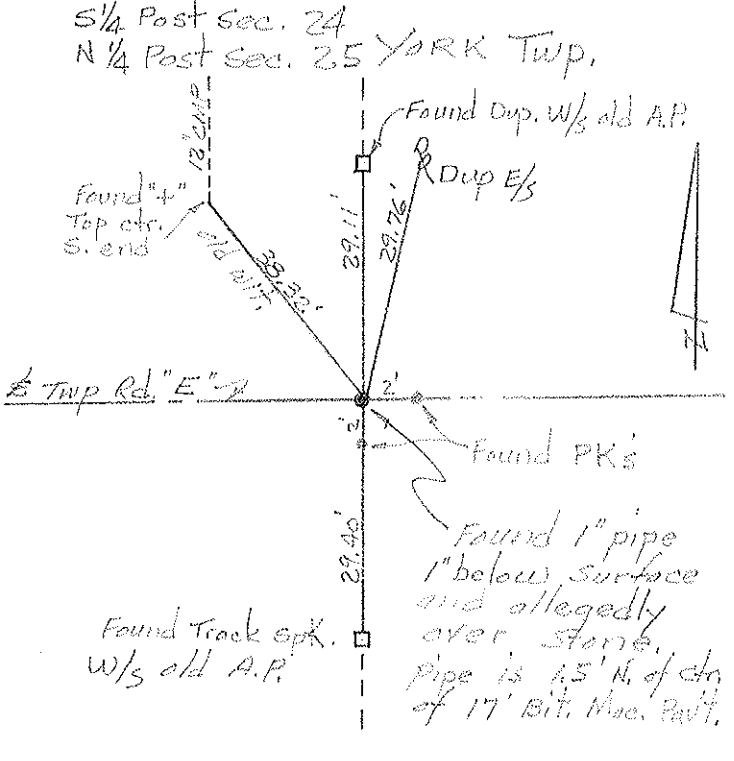 S¼ Post Sec. 24
N¼ Post Sec. 25 YORK Twp.
Found Dup. W/s old A.P.
Dup E/s
12" CMP
Found "+"
Top ctr.
S. end
29.11'
29.76'
38.32'
old wit.
N
℄ Twp Rd. "E"
2'
2'
Found PK's
29.40'
Found 1" pipe
1" below surface
and allegedly
over stone.
Pipe is 1.5' N. of ctr.
of 17' Bit. Mac. Pav't.
Found Track spk.
W/s old A.P.